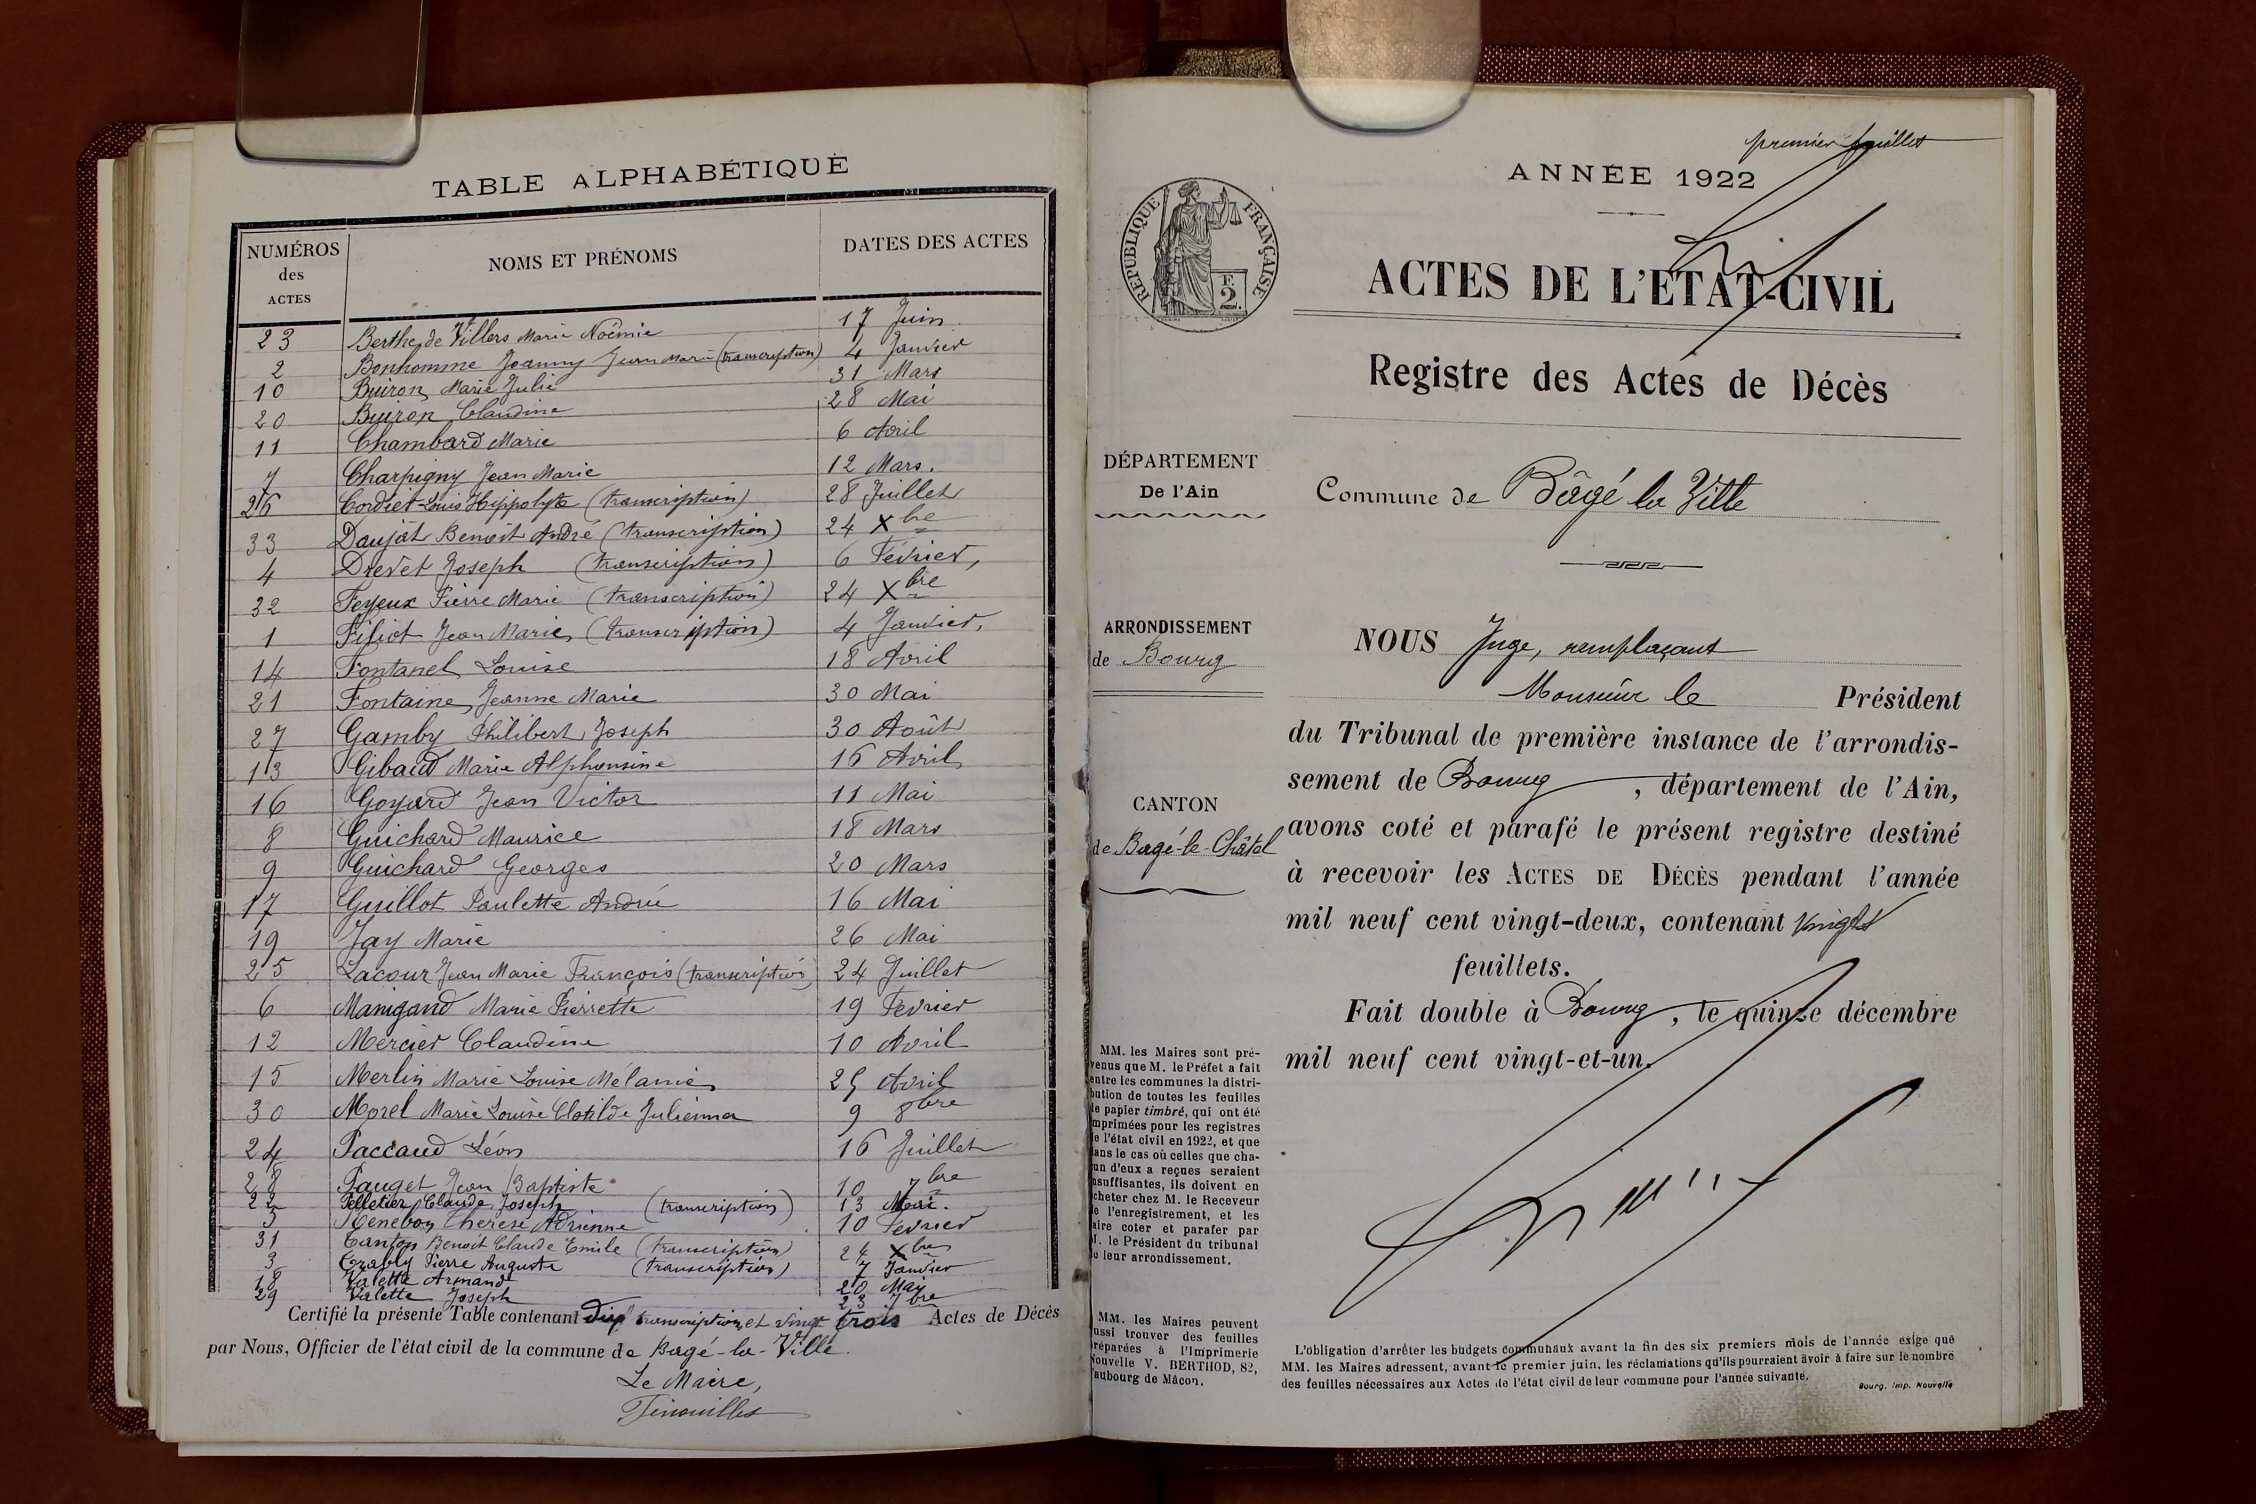 TABLE ALPHABÉTIQUE
NUMÉROS des ACTES NOMS ET PRÉNOMS DATES DES ACTES
23 Berthe de Villers Marie Noémie 17 Juin
2 Bonhomme Joanny Jean Marie (transcription) 4 Janvier
10 Buiron Marie Julie 31 Mars
20 Buiron Claudine 28 Mai
11 Chambard Marie 6 Avril
7 Charpigny Jean Marie 12 Mars.
26 Cordier Louis Hippolyte (transcription) 28 Juillet
33 Daujat Benoit André (transcription) 24 Xbre
4 Drevet Joseph (transcription) 6 Février,
32 Feyeux Pierre Marie (transcription) 24 Xbre
1 Filiot Jean Marie, (transcription) 4 Janvier,
14 Fontanel Louise 18 Avril
21 Fontaine Jeanne Marie 30 Mai
27 Gamby Philibert Joseph 30 Août
13 Gibaud Marie Alphonsine 16 Avril
16 Goyard Jean Victor 11 Mai
8 Guichard Maurice 18 Mars
9 Guichard Georges 20 Mars
17 Guillot Paulette Andrée 16 Mai
19 Jay Marie 26 Mai
25 Lacour Jean Marie François (transcription) 24 Juillet
6 Manigand Marie Pierrette 19 Février
12 Mercier Claudine 10 Avril
15 Merlin Marie Louise Mélanie 25 Avril
30 Morel Marie Louise Clotilde Julienne 9 8bre
24 Paccaud Léon 16 Juillet
28 Pauget Jean Baptiste 10 7bre
22 Pelletier Claude Joseph (transcription) 13
5 Thérèse Adrienne 10 Février
31 Tanton Benoit Claude Emile (transcription) 24 Xbre
3 Trably Pierre Auguste (transcription) 7 Janvier
18 Valette Armand 20 Mai
29 Valette Joseph 23 7bre
Certifié la présente Table contenant Dix transcriptions et vingt trois Actes de Décès
par Nous, Officier de l'état civil de la commune de Bagé-la-Ville.
Le Maire,
premier feuillet
ANNÉE 1922
RÉPUBLIQUE FRANÇAISE
F. 2.
ACTES DE L'ÉTAT-CIVIL
Registre des Actes de Décès
DÉPARTEMENT
De l'Ain
Commune de Bâgé la Ville
ARRONDISSEMENT
de Bourg
CANTON
de Bagé-le-Châtel
NOUS Juge, remplaçant
Monsieur le Président
du Tribunal de première instance de l'arrondis-
sement de Bourg, département de l'Ain,
avons coté et parafé le présent registre destiné
à recevoir les ACTES DE DÉCÈS pendant l'année
mil neuf cent vingt-deux, contenant vingt
feuillets.
Fait double à Bourg, le quinze décembre
mil neuf cent vingt-et-un.
MM. les Maires sont pré-
venus que M. le Préfet a fait
entre les communes la distri-
bution de toutes les feuilles
de papier timbré, qui ont été
imprimées pour les registres
de l'état civil en 1922, et que
dans le cas où celles que cha-
cun d'eux a reçues seraient
insuffisantes, ils doivent en
acheter chez M. le Receveur
de l'enregistrement, et les
faire coter et parafer par
M. le Président du tribunal
de leur arrondissement.
MM. les Maires peuvent
aussi trouver des feuilles
préparées à l'Imprimerie
Nouvelle V. BERTHOD, 82,
faubourg de Mâcon.
L'obligation d'arrêter les budgets communaux avant la fin des six premiers mois de l'année exige que
MM. les Maires adressent, avant le premier juin, les réclamations qu'ils pourraient avoir à faire sur le nombre
des feuilles nécessaires aux Actes de l'état civil de leur commune pour l'année suivante.
Bourg, Imp. Nouvelle